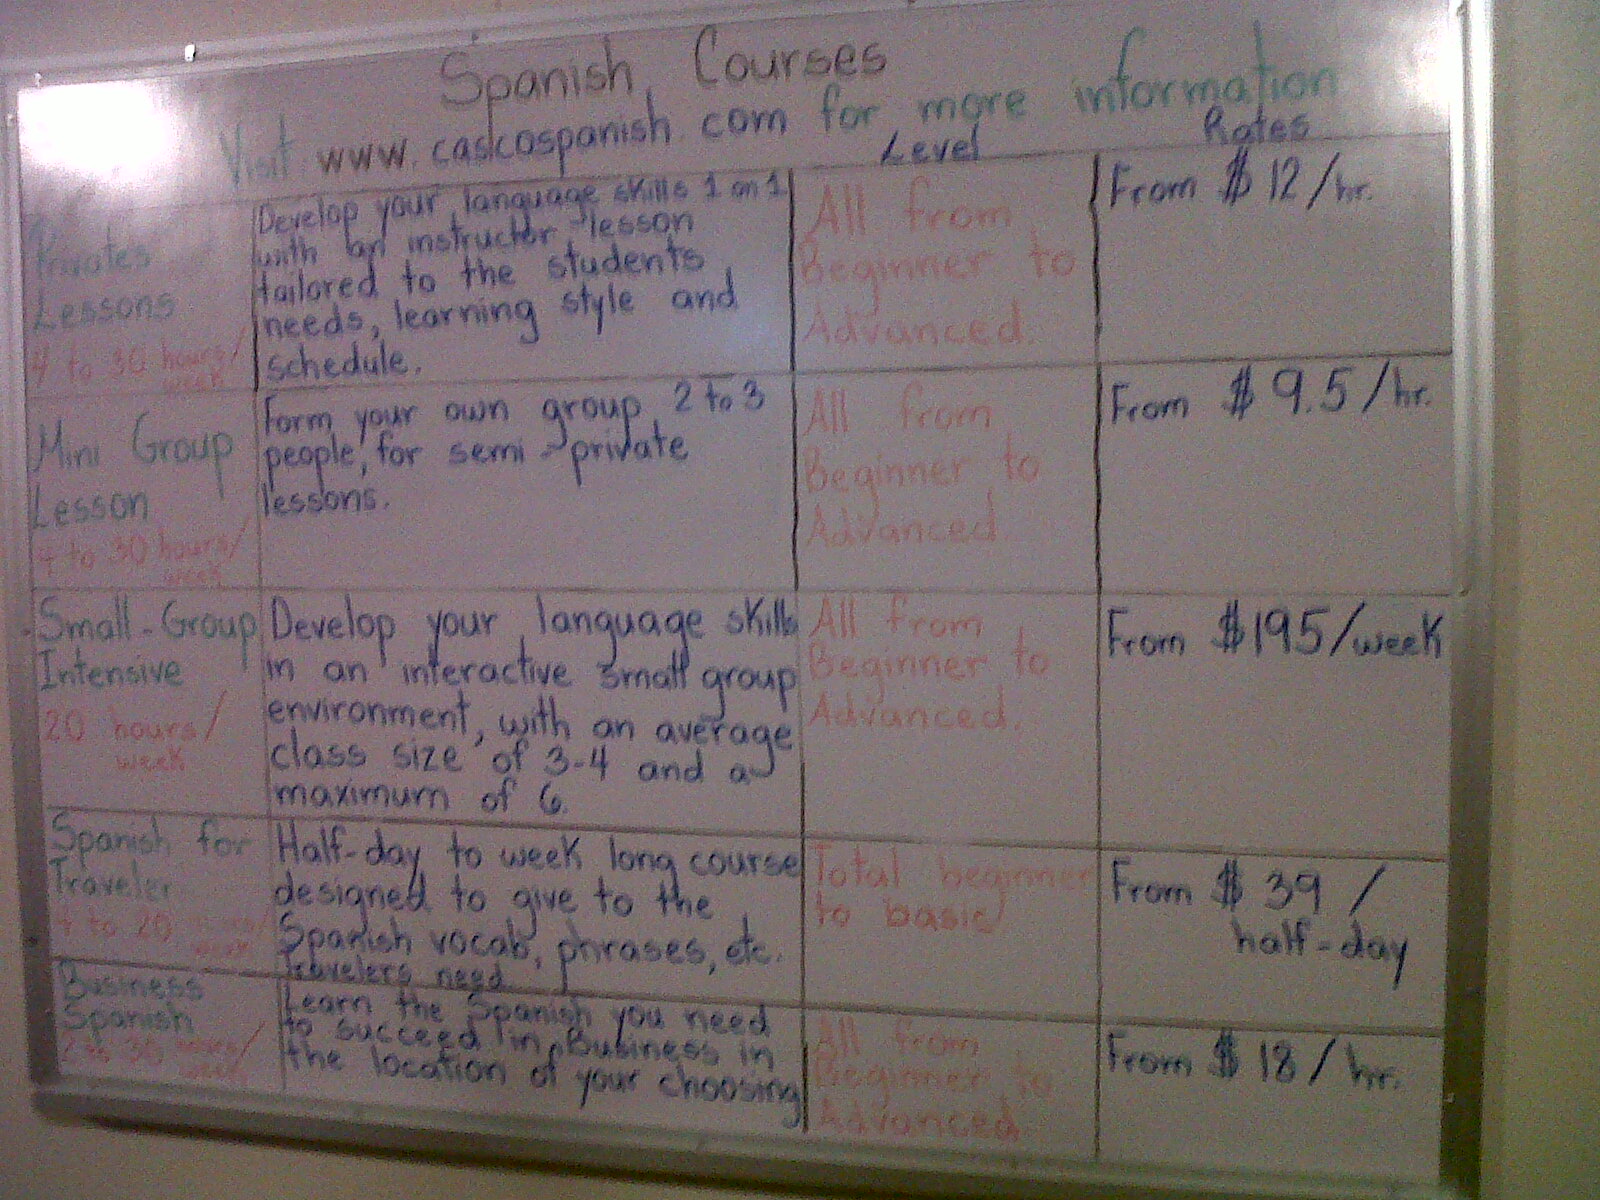 Spanish Courses
Visit www.cascospanish.com for more information
Level
Rates
Privates
Lessons
4 to 30 hours/
week
Develop your language skills 1 on 1
with an instructor - lesson
tailored to the students
needs, learning style and
schedule.
All from
Beginner to
Advanced.
From $12/hr.
Mini Group
Lesson
4 to 30 hours/
week
Form your own group, 2 to 3
people, for semi-private
lessons.
All from
Beginner to
Advanced.
From $9.5/hr.
Small-Group
Intensive
20 hours/
week
Develop your language skills
in an interactive small group
environment, with an average
class size of 3-4 and a
maximum of 6.
All from
Beginner to
Advanced.
From $195/week
Spanish for
Traveler
4 to 20 hours/
week
Half-day to week long course
designed to give to the
Spanish vocab, phrases, etc.
travelers need
Total beginner
to basic
From $39/
half-day
Business
Spanish
2 to 30 hours/
week
Learn the Spanish you need
to succeed in Business in
the location of your choosing
All from
Beginner to
Advanced.
From $18/hr.